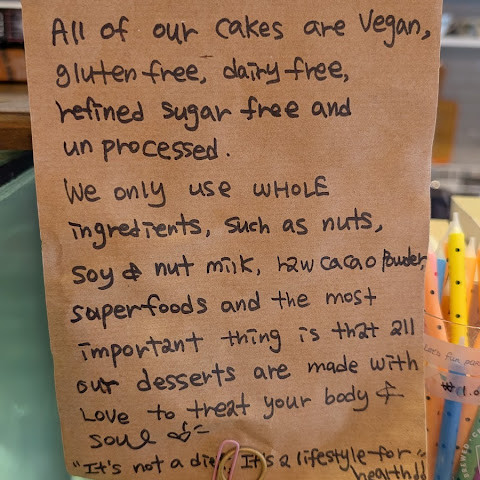 All of our cakes are Vegan,
gluten free, dairy free,
refined sugar free and
unprocessed.
We only use WHOLE
ingredients, such as nuts,
soy & nut milk, raw cacao powder
superfoods and the most
important thing is that all
our desserts are made with
Love to treat your body &
soul
"It's not a diet. It's a lifestyle for
health"
Let's fun
₩1.0